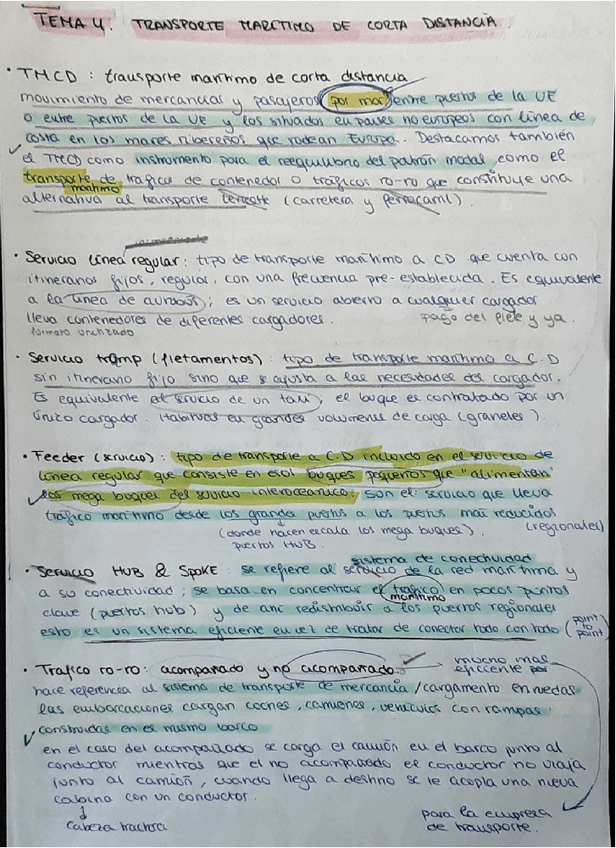 TEMA 4. TRANSPORTE MARITIMO DE CORTA DISTANCIA.
• TMCD : transporte marítimo de corta distancia
movimiento de mercancías y pasajeros por mar entre puertos de la UE
o entre puertos de la UE y los situados en países no europeos con línea de
costa en los mares ribereños que rodean Europa. Destacamos también
el TMCD como instrumento para el reequilibrio del patrón modal como el
transporte de trafico de contenedor o tráficos ro-ro que constituye una
marítimo
alternativa al transporte terrestre (carretera y ferrocarril).
• Servicio línea regular : tipo de transporte marítimo a CD que cuenta con
itinerarios fijos, regular, con una frecuencia pre-establecida. Es equivalente
a la línea de autobús; es un servicio abierto a cualquier cargador
lleva contenedores de diferentes cargadores. pago del flete y ya.
formato unitizado
• Servicio tramp (fletamentos) : tipo de transporte marítimo a C.D
sin itinerario fijo sino que se ajusta a las necesidades del cargador.
Es equivalente al servicio de un taxi, el buque es contratado por un
único cargador. Habitual en grandes volumenes de carga (graneles).
• Feeder (servicio) : tipo de transporte a C.D incluido en el servicio de
línea regular que consiste en esos buques pequeños que "alimentan"
los mega buques del servicio interoceánico, son el servicio que lleva
tráfico marítimo desde los grandes puertos a los puertos más reducidos
(donde hacen escala los mega buques). (regionales)
puertos HUB.
sistema de conectividad
• Servicio HUB & SPOKE : se refiere al servicio de la red marítima y
a su conectividad; se basa en concentrar el trafico en pocos puntos
marítimo
clave (puertos hub) y de ahí redistribuir a los puertos regionales
esto es un sistema eficiente en vez de tratar de conectar todo con todo (point to point)
• Trafico ro-ro : acompañado y no acompañado. mucho mas
eficiente
hace referencia al sistema de transporte de mercancía / cargamento en ruedas
las embarcaciones cargan coches, camiones, vehículos con rampas
construidas en el mismo barco
en el caso del acompañado se carga el camión en el barco junto al
conductor mientras que el no acompañado el conductor no viaja
junto al camión, cuando llega a destino se le acopla una nueva
cabina con un conductor.
cabeza tractora
para la empresa
de transporte.